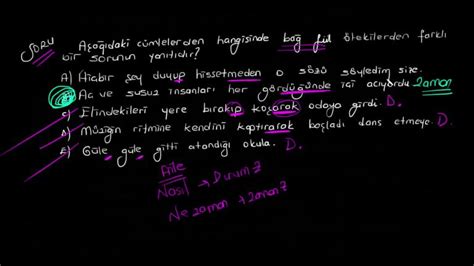 SORU Aşağıdaki cümlelerden hangisinde bağ fiil ötekilerden farklı
bir sorunun yanıtıdır?
A) Hiçbir şey duyup hissetmeden o sözü söyledim size.
Aç ve susuz insanları her gördüğünde içi acıyordu. Zaman
C) Elindekileri yere bırakıp koşarak odaya girdi. D.
D) Müziğin ritmine kendini kaptırarak başladı dans etmeye. D.
E) Güle güle gitti atandığı okula. D.
Aile
Nasıl → Durum Z
Ne zaman → zaman Z